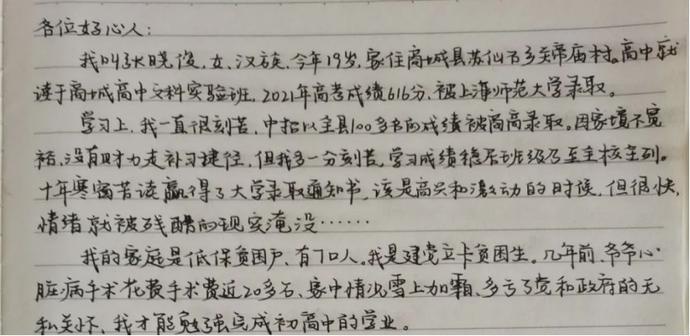 各位好心人：
我叫张晓俊，女、汉族，今年19岁，家住商城县苏仙石乡关帝庙村。高中就
读于商城高中文科实验班，2021年高考成绩616分，被上海师范大学录取。
学习上，我一直很刻苦，中招以全县100多名的成绩被商高录取。因家境不宽
裕，没有财力走补习捷径，但我多一分刻苦，学习成绩稳居班级乃至全校全列。
十年寒窗苦读赢得了大学录取通知书，该是高兴和激动的时候，但很快，
情绪就被残酷的现实淹没……
我的家庭是低保贫困户，有7口人。我是建党立卡贫困生。几年前，爷爷心
脏病手术花费手术费近20多万，家中情况雪上加霜，多亏了党和政府的无
私关怀，我才能勉强完成初高中的学业。